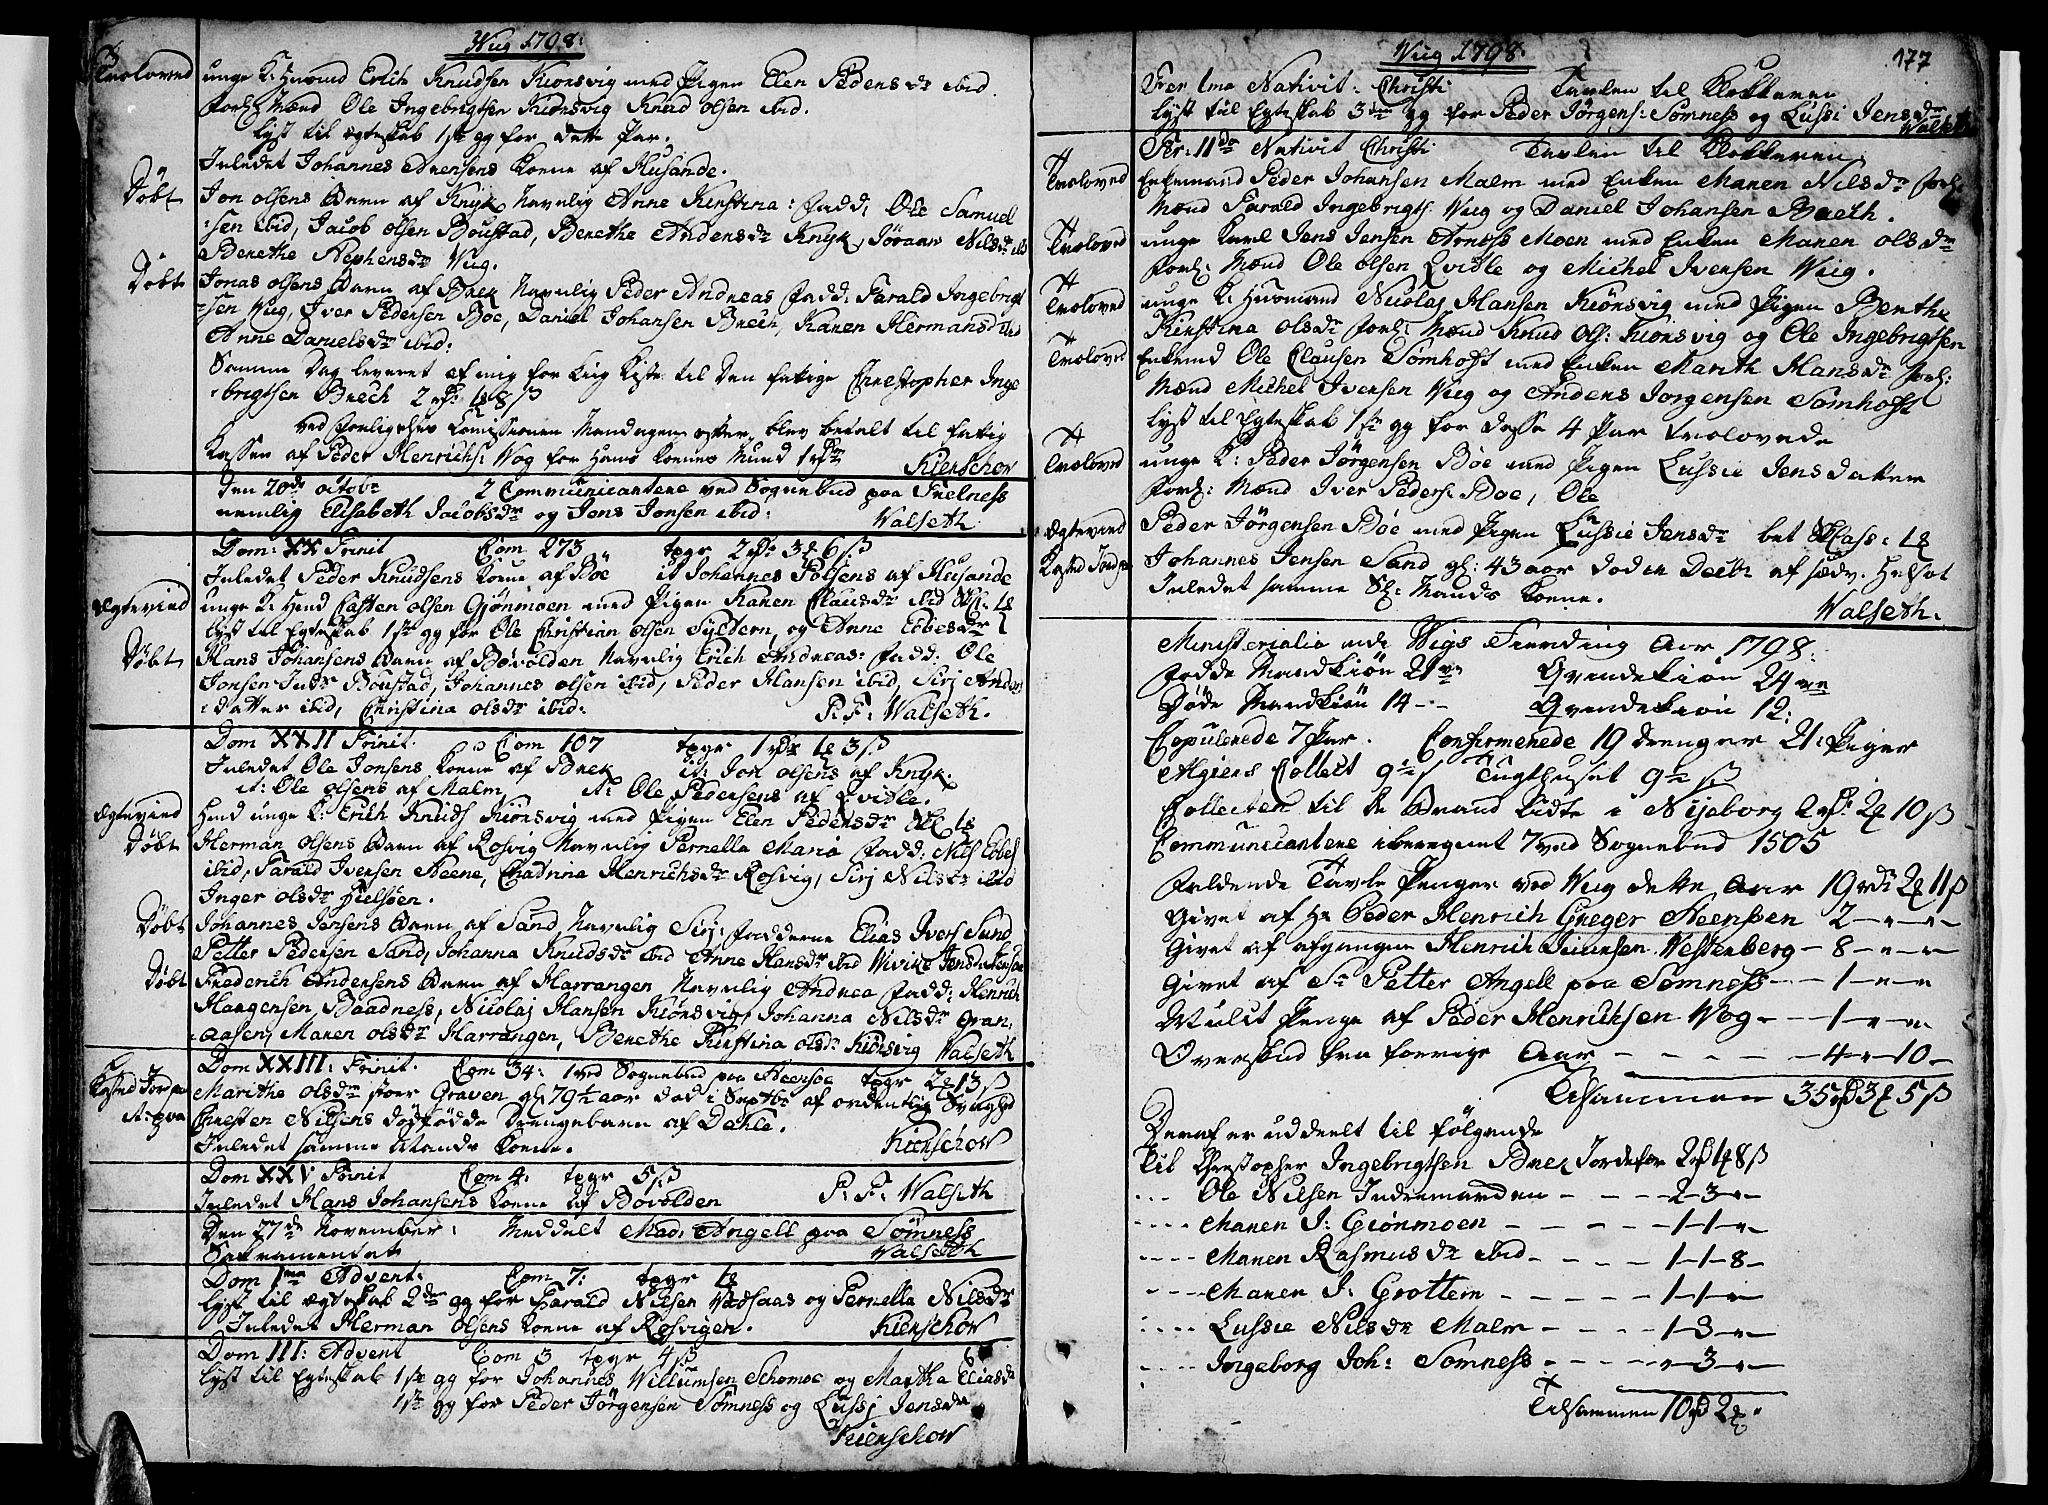 Wug 1798:
Troloved unge K: Huusmd Erich Knudsen Kiönsvig med Pigen Elen Peders dr ibid.
Forl: Mænd Ole Ingebrigtsen Kiönsvig Knud olsen ibid.
Lyst til Egteskab 1ste gg for dette Par.
Inledet Johannes Arensens Kone af Husande.
Döbt Jon olsens Barn af Knyk Navnlig Anne Kirstina: Fadd: Ole Samuel
:sen ibid, Jacob olsen Boustad, Berethe Anders dr Knyk, Jörann Nils dr ibd
Berethe Stephens dr Wug.
Döbt Jonas olsens Barn af Brek Navnlig Peder Andreas Fadd: Farald Ingebrigt
:sen Wug, Iver Pedersen Boe, Daniel Johansen Brech, Karen Hermans dr ibd
Anne Daniels dr ibid:
Samme Dag leveret af mig for Liig Kiste til den fattige Christopher Inge
:brigtsen Brech 2 rdr 1 ₰ 8 ß
ved Forligelses Comissionen Mandagen efter, blev betalt til fattig
Kassen af Peder Henrichs: Wog for hans Kones Mund 1 rdr Kierschow
Den 20de octobr 2 Communicantere ved Sognebud paa Frelness
nemlig Elisabeth Jacobs dr og Jens Jonsen ibid: Walseth
Dom: XX Trinit Com 273 tpgr 2 rdr 3 ₰ 6 ß
Inledet Peder Knudsens Kone af Böe it Johannes Polsens af Husande
Egtevied unge K: Hend Casten olsen Gjönmoen med Pigen Karen Claus dr ibid
Lyst til Egteskab 1ste gg for Ole Christian olsen Syltern, og Anne Ebbes dr
Döbt Hans Johansens Barn af Bövolden Navnlig Erich Andreas: Fadd: Ole
Jonsen Indr Boustad, Johannes olsen ibid, Peder Hansen ibid, Sirj Anders
:datter ibid, Christina ols dr ibid: P. F: Walseth.
Dom XXII Trinit. Com 107 tpgr 1 rdr 1 ₰ 3 ß
Inledet Ole Jonsens Kone af Brek it: Jon olsens af Knyk.
it: Ole olsens af Malm, it: Ole Pedersens af Qvidle.
Egtevied Hend unge K: Erich Knuds Kiönsvig med Pigen Elen Peders dr
Döbt Herman olsens Barn af Rosvig Navnlig Pernella Maria Fadd: Nils Ebbes
ibid, Farald Iversen Heene, Chadrina Henrichs dr Rosvig, Sirj Nils dr ibid
Inger ols dr Fielsöen.
Döbt Johannes Jensens Barn af Sand, Navnlig Sirj: Fadderne Elias Ivers Sund
Petter Pedersen Sand, Johanna Knuds dr ibid Anne Hans dr ibid Wivike Jens dr
Döbt Frederich Andersens Barn af Harrangen Navnlig Andrea Fadd: Henrich
Haagensen Baadness, Nicolaj Hansen Kiönsvig, Johanna Nils dr Gran,
:aasen, Maren ols dr Harrangen, Berethe Kirstina ols dr Kiönsvig Walseth
Dom XXIII: Trinit. Com 34: 1 ved Sognebud paa Heersöe tpgr 2 ₰ 13 ß
Kasted Jord paa Marithe ols dr stoer Graven gl 79½ aar död i Septbr af ordentlig Svaghed
it: paa Christen Nilsens dödfödde Drengebarn af Dahle.
Inledet samme Mands Kone. Kierschow
Dom XXV Trinit Com 4: tpgr 5 ß
Inledet Hans Johansens Kone af Bövolden P. F: Walseth
Den 27de November: Meddelt Mad: Angell paa Sömness
Sacramentet Walseth
Dom 1ma Advent. Com 7: tpgr 1 ₰
Lyst til Egteskab 2den gg for Farald Nilsen Vedsaas og Pernella Nils dr
Inledet Herman olsens Kone af Rosvigen. Kierschow
Dom III: Advent Com 3 tpgr 4 ß
Lyst til Egteskab 1ste gg for Johannes Willumsen Schomoe og Martha Elias dr
1ste gg for Peder Jörgensen Sömness og Lussj Jens dr
Kierschow
Wug 1798. 177
Fer Ima Nativit: Christi Tavlen til Klokkeren
Lyst til Egteskab 3die gg for Peder Jörgens: Sömness og Lussi Jens dr
Walseth
Fer: IIda Nativit Christi Tavlen til Klokkeren
Troloved Enkemand Peder Johansen Malm med Enken Maren Nils dr Forl:
Mænd Farald Ingebrigts: Wug og Daniel Johansen Brech.
Troloved unge Karl Jens Jensen Arnöss Moen med Enken Maren ols dr
Forl: Mænd Ole olsen Qvidle og Michel Iversen Wug.
Troloved unge K: Huusmand Nicolaj Hansen Kiönsvig med Pigen Berthe
Kirstina ols dr Forl: Mænd Knud Ols: Kiönsvig og Ole Ingebrigtsen
Troloved Enkemd Ole Clausen Sömhoft med Enken Marith Hans dr Forl:
Mænd Michel Iversen Wug og Anders Jörgensen Sömhoft
Lyst til Egteskab 1ste gg for desse 4 Par trolovede
Troloved unge K: Peder Jörgensen Böe med Pigen Lussie Jensdatter
Forl: Mænd Iver Peders: Boe, Ole
Egtevied Peder Jörgensen Böe med Pigen Lussie Jens dr bet
Kasted Jord paa Johannes Jensen Sand gl: 43 aar död in Decbr af sædv. Helsot
Inledet samme Sl: Mands Kone.
Walseth.
Ministerialia udi Wigs Fierding Aar 1798:
Födde Mandkiön 21ve Qvindekiön 24ve
Döde Mandkiön 14 -- Qvindekiön 12:
Copulerede 7 Par. Confirmerede 19 drenger 21: Piger
Algiers Collect 9 ß Tugthuset 9 ß
Collecten til de Brand Lidte i Nijeborg 2 rdr 2 ₰ 10 ß
Communicantere iberegnet 7 ved Sognebud 1505
Faldende Tavle Penger ved Wug dette Aar 19 rdr 2 ₰ 11 ß
Givet af Hr Peder Henrich Greger Heenssen 2 - " - " -
Givet af afgangne Henrich Iversen Westerberg - 8 - " - " -
Givet af Sr Petter Angell paa Sömness - - - 1 - " - " -
Mulct Penge af Peder Henrichsen Wog - - 1 - " - " -
Overskud fra forrige Aar - - - - - 4 " - 10 -
Tilsammen 35 rd 3 ₰ 5 ß
Deraf er uddeelt til fölgende
Til Christopher Ingebrigtsen Brek Jordefær 2 rd 1 ₰ 8 ß
Ole Nilsen Indremarden - - - - 2 - 3 - " -
Maren J: Giönmoen - - - - - 1 - 1 - " -
Maren Rasmus dr ibid - - - - 1 - 1 - 8 -
Maren J: Grottem - - - - - 1 - 1 - " -
Lussie Nils dr Malm - - - - 1 - 3 - " -
Ingeborg Joh: Sömness - - - - " - 3 - " -
Tilsammen 10 rd 2 ₰ "